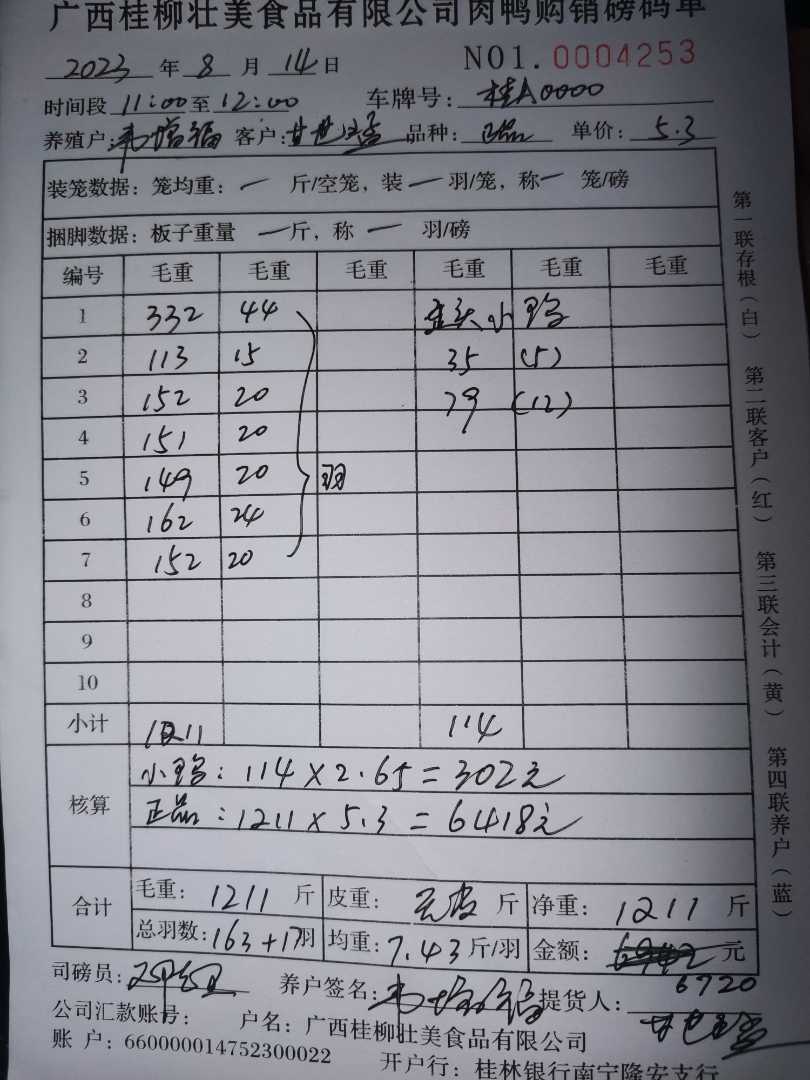 广西桂柳壮美食品有限公司肉鸭购销磅码单
2023 年 8 月 14 日 NO1. 0004253
时间段 11:00 至 12:00 车牌号: 桂A0000
养殖户: 韦增福 客户: 品种: 正品 单价: 5.3
装笼数据: 笼均重: 一 斤/空笼, 装 一 羽/笼, 称 一 笼/磅
捆脚数据: 板子重量 一 斤, 称 一 羽/磅
编号 毛重 毛重 毛重 毛重 毛重 毛重
1 332 44 小
2 113 15 35 (5)
3 152 20 79 (12)
4 151 20
5 149 20 羽
6 162 24
7 152 20
8
9
10
小计 1211 114
核算
小鸭: 114 × 2.65 = 302元
正品: 1211 × 5.3 = 6418元
合计 毛重: 1211 斤 皮重: 斤 净重: 1211 斤
总羽数: 163+17羽 均重: 7.43 斤/羽 金额: 元
6720
司磅员: 养户签名: 韦增福 提货人:
公司汇款账号: 户名: 广西桂柳壮美食品有限公司
账 户: 660000014752300022 开户行: 桂林银行南宁隆安支行
第一联存根(白) 第二联客户(红) 第三联会计(黄) 第四联养户(蓝)